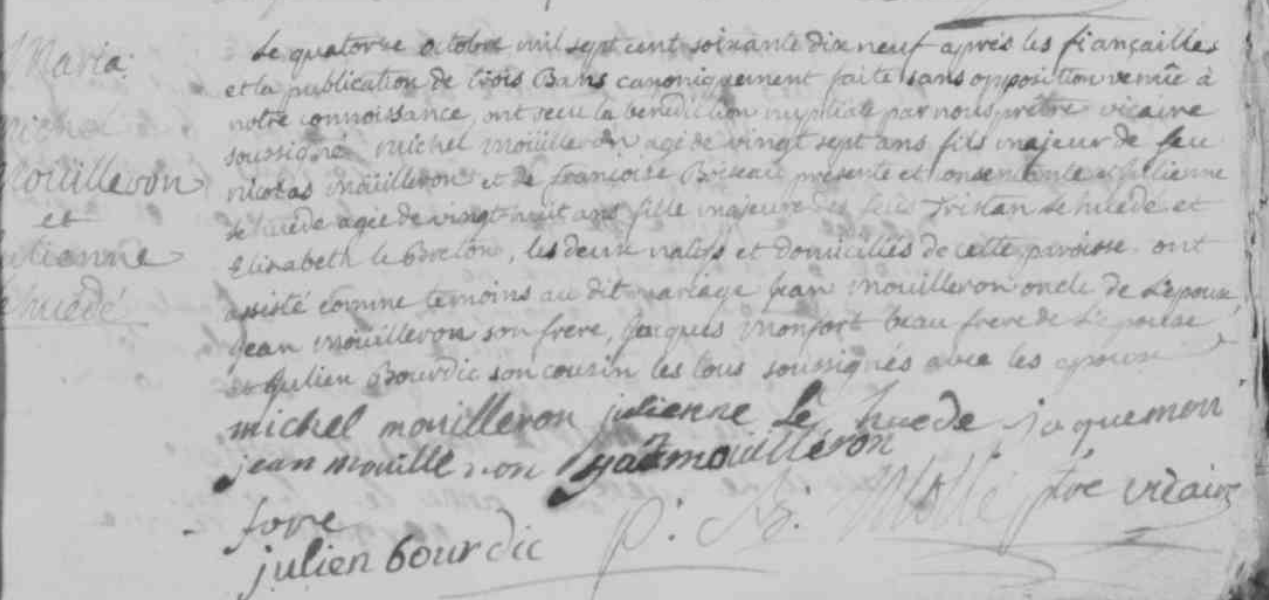 Maria.
michel
Mouilleron
et
julienne
Le huédé
Le quatorze octobre mil sept cent soixante dix neuf aprés les fiançailles
et la publication de trois Bans canoniquement faite sans opposition venüe à
notre connoissance, ont recu la benediction nuptiale par nous prêtre vicaire
soussigné michel mouilleron agé de vingt sept ans fils majeur de feu
nicolas moüilleron et de françoise Briseau présente et consentente et jullienne
le huede agée de vingt huit ans fille majeure des feus Tristan le huede et
Elisabeth le Breton, les deux natifs et domiciliés de cette paroisse. ont
assisté comme temoins au dit mariage jean mouilleron oncle de L'epoux,
jean mouilleron son frere, jacques monfort beau frere de L'epouse
et Julien Bourdic son cousin les tous soussignés avec les epoux
michel mouilleron julienne le huede jaquemon
jean mouilleron mouilléron
fore
julien bourdic p. ptre vicaire